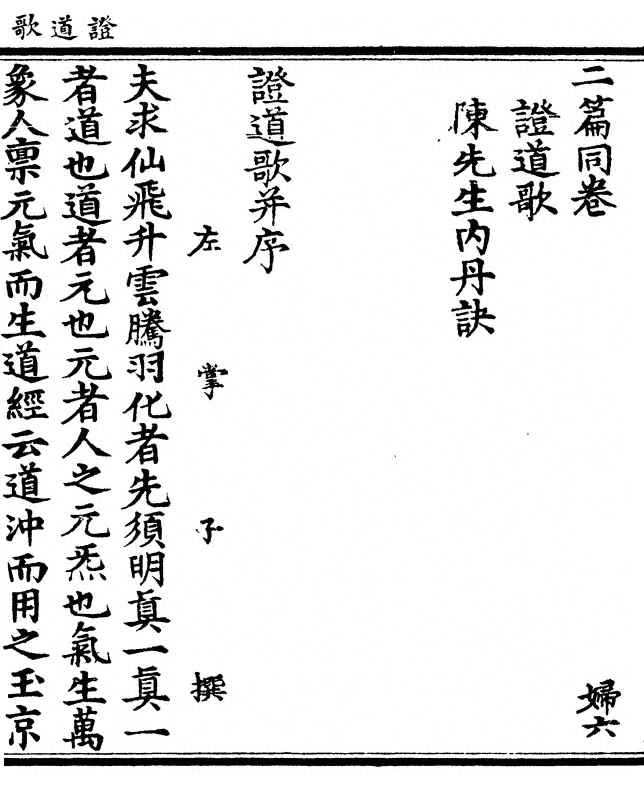 證道歌
二篇同卷　婦六
證道歌
陳先生内丹訣
證道歌并序
左掌子撰
夫求仙飛升雲騰羽化者先須明真一真一
者道也道者元也元者人之元炁也氣生萬
象人禀元氣而生道經云道沖而用之玉京